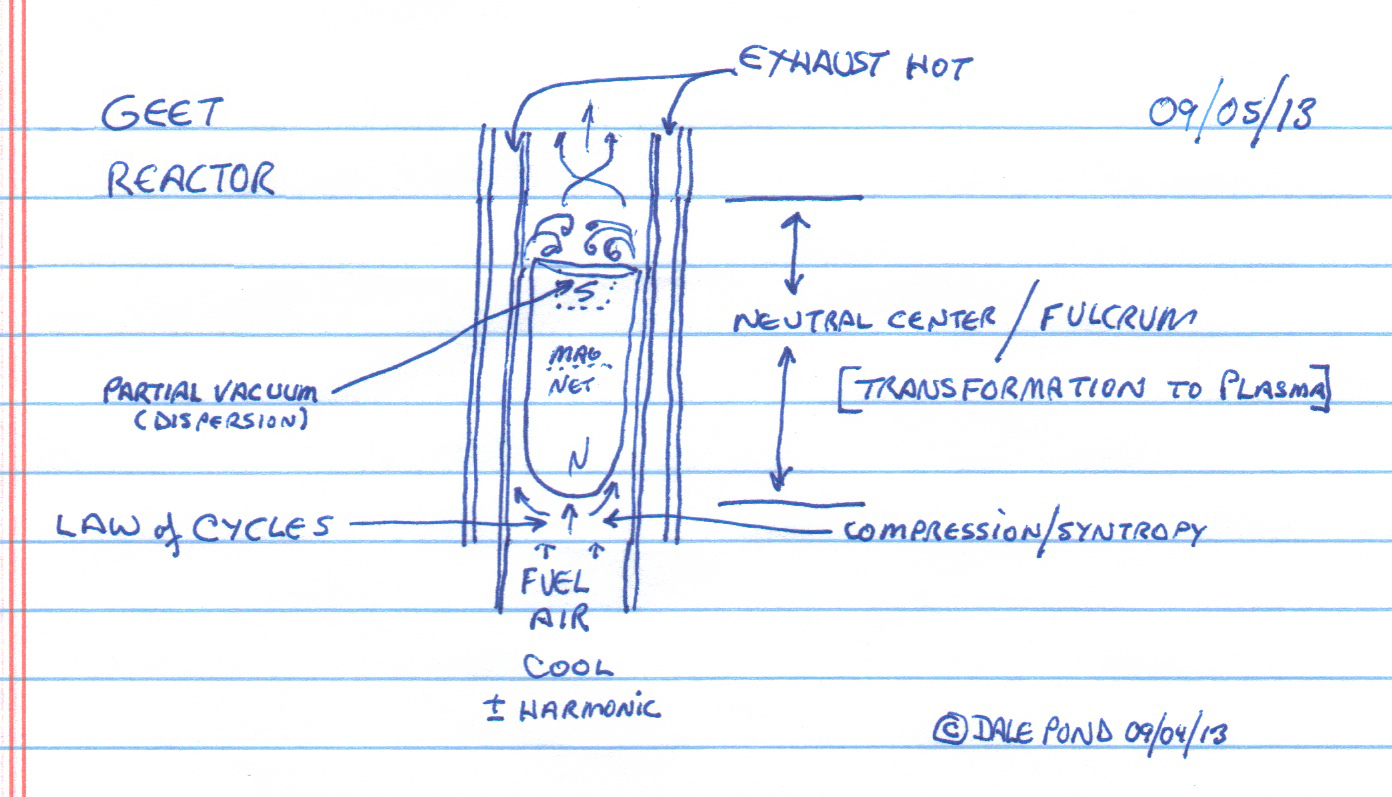 EXHAUST HOT
GEET
REACTOR
09/05/13
S
NEUTRAL CENTER / FULCRUM
MAG
NET
[TRANSFORMATION TO PLASMA]
PARTIAL VACUUM
(DISPERSION)
N
LAW of CYCLES
COMPRESSION/SYNTROPY
FUEL
AIR
COOL
± HARMONIC
© DALE POND 09/04/13